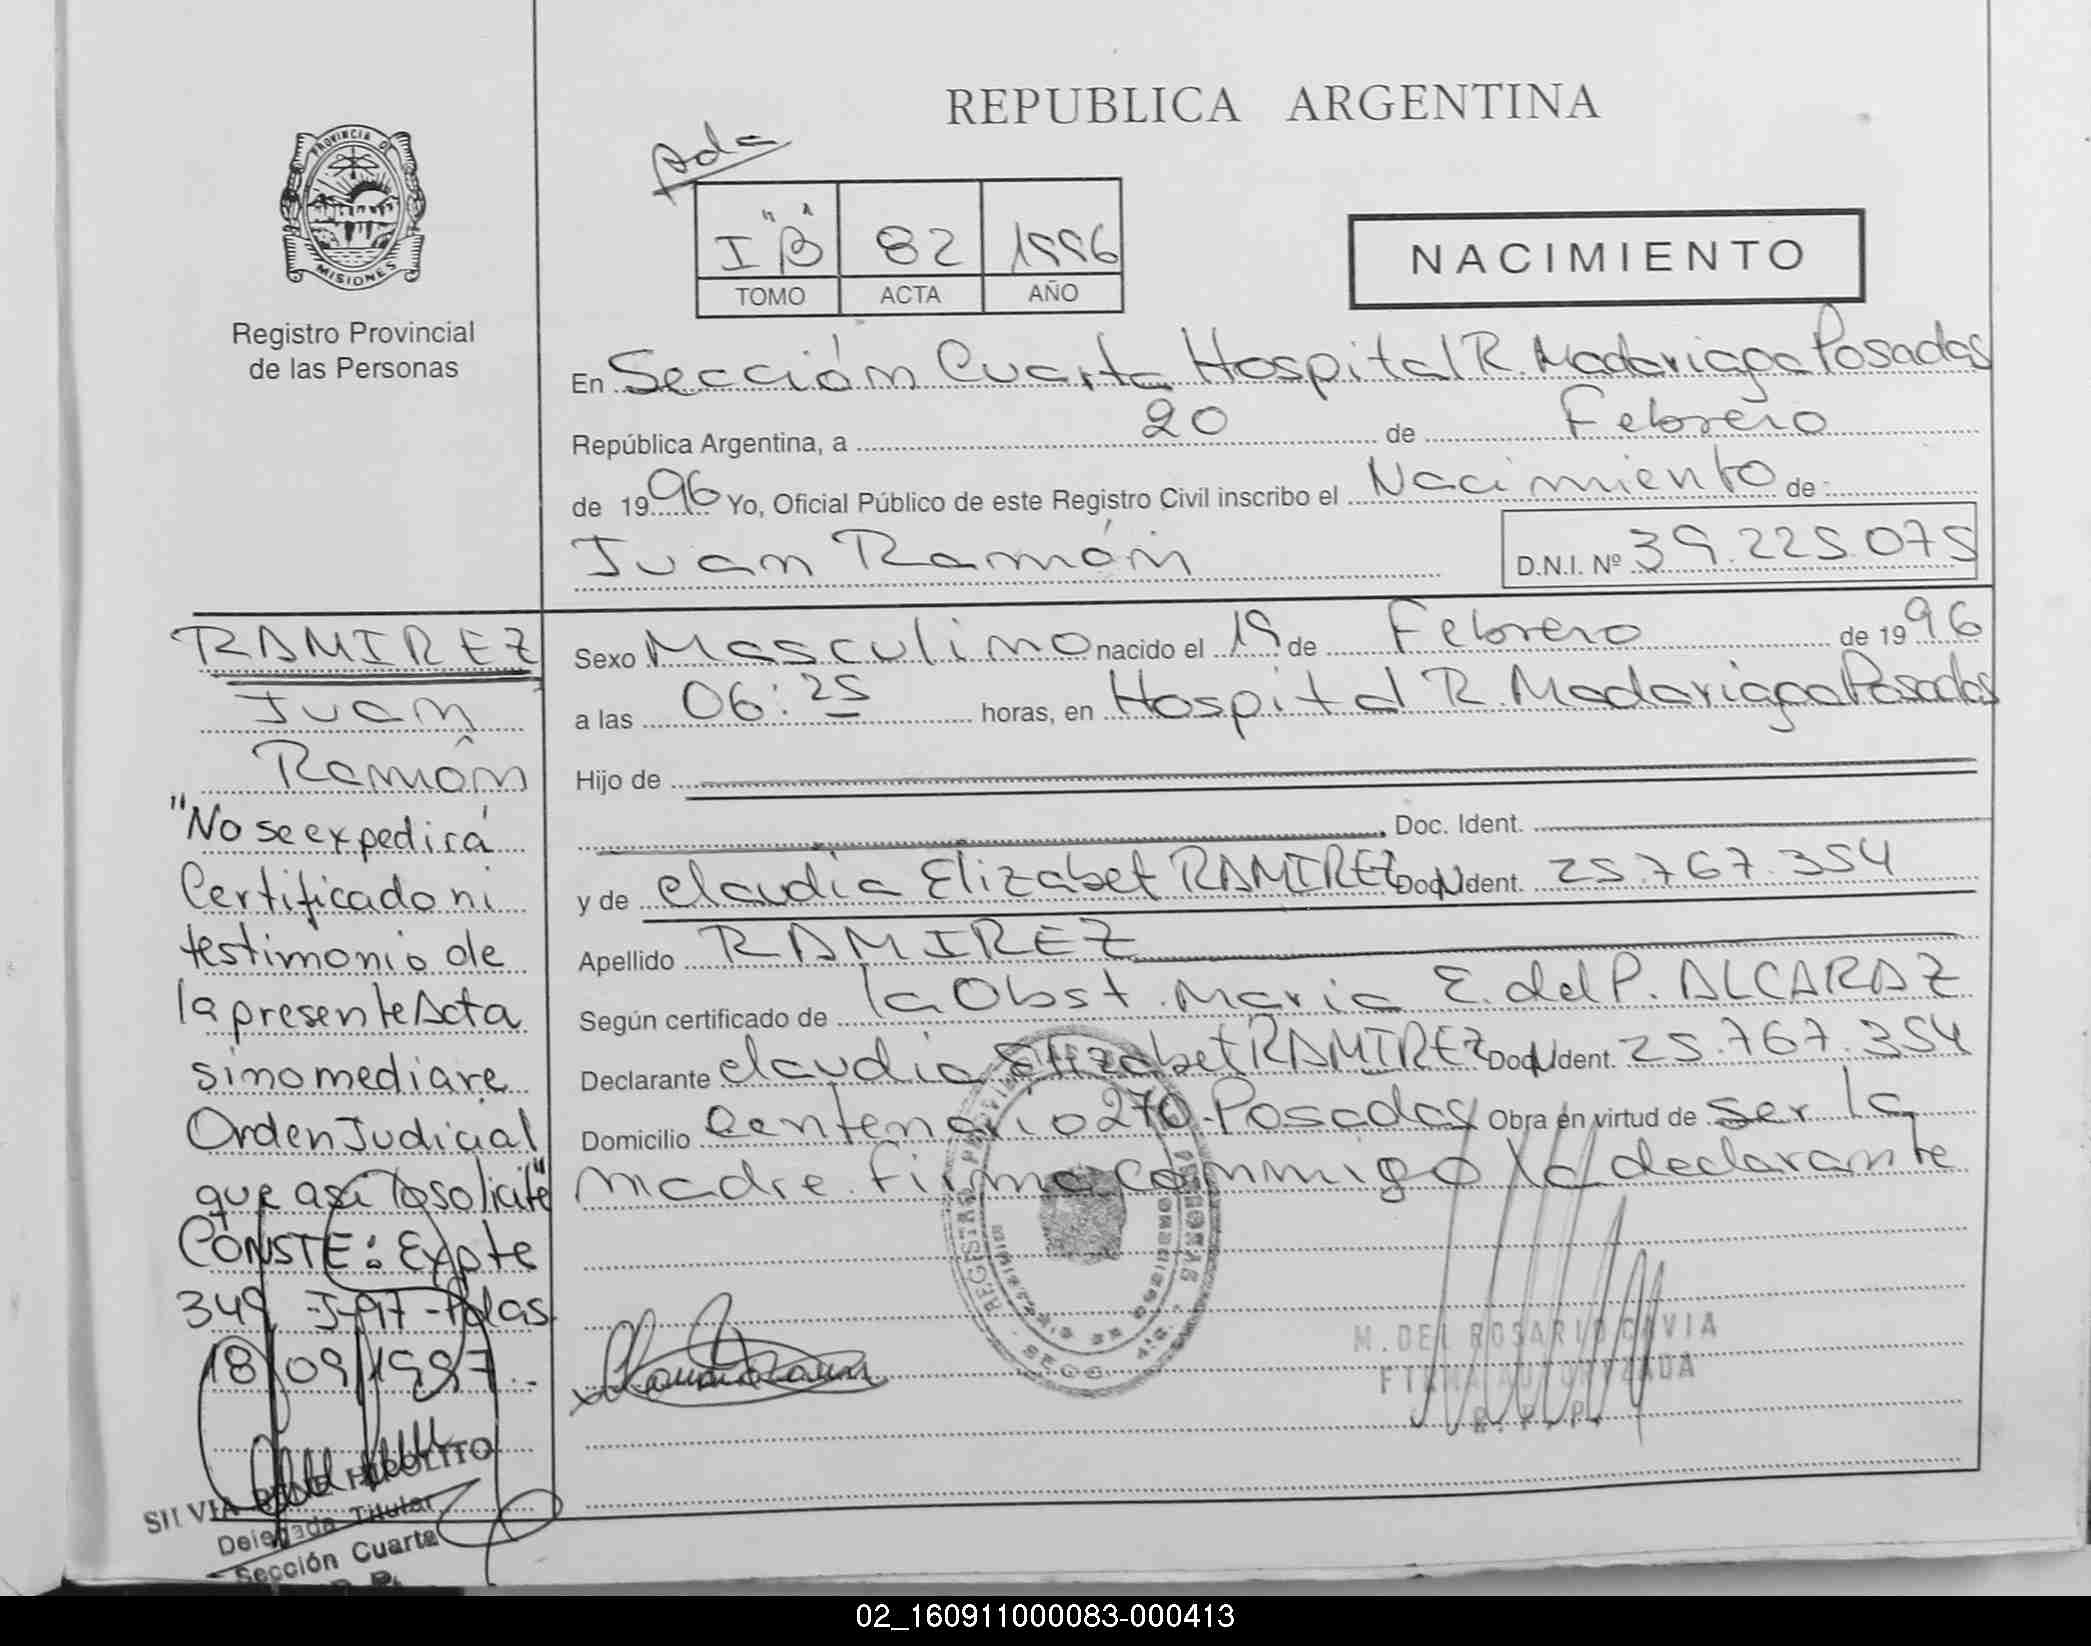 REPUBLICA ARGENTINA
PROVINCIA D
MISIONES
Registro Provincial
de las Personas
I "B" 82 1996
TOMO ACTA AÑO
NACIMIENTO
En Sección Cuarta Hospital R. Madariaga Posadas
República Argentina, a 20 de Febrero
de 1996 Yo, Oficial Público de este Registro Civil inscribo el Nacimiento de
Juan Ramón D.N.I. Nº 39.225.075
Sexo Masculino nacido el 19 de Febrero de 1996
a las 06:25 horas, en Hospital R. Madariaga Posadas
Hijo de
Doc. Ident.
y de Claudia Elizabet RAMIREZ Doc. Ident. 25.767.354
Apellido RAMIREZ
Según certificado de la Obst. Maria E. del P. ALCARAZ
Declarante Claudia Elizabet RAMIREZ Doc. Ident. 25.767.354
Domicilio Centenario 270-Posadas Obra en virtud de ser la
madre. Firma conmigo la declarante
RAMIREZ
Juan
Ramón
"No se expedirá
Certificado ni
testimonio de
la presente Acta
sino mediare
Orden Judicial
que asi lo solicite"
CONSTE: Expte
349 -J-97-Pdas
18/09/1997
SILVIA HIPOLITO
Delegada Titular
Sección Cuarta
M. DEL ROSARIO CAVIA
FIRMA AUTORIZADA
R. P. P.
02_160911000083-000413